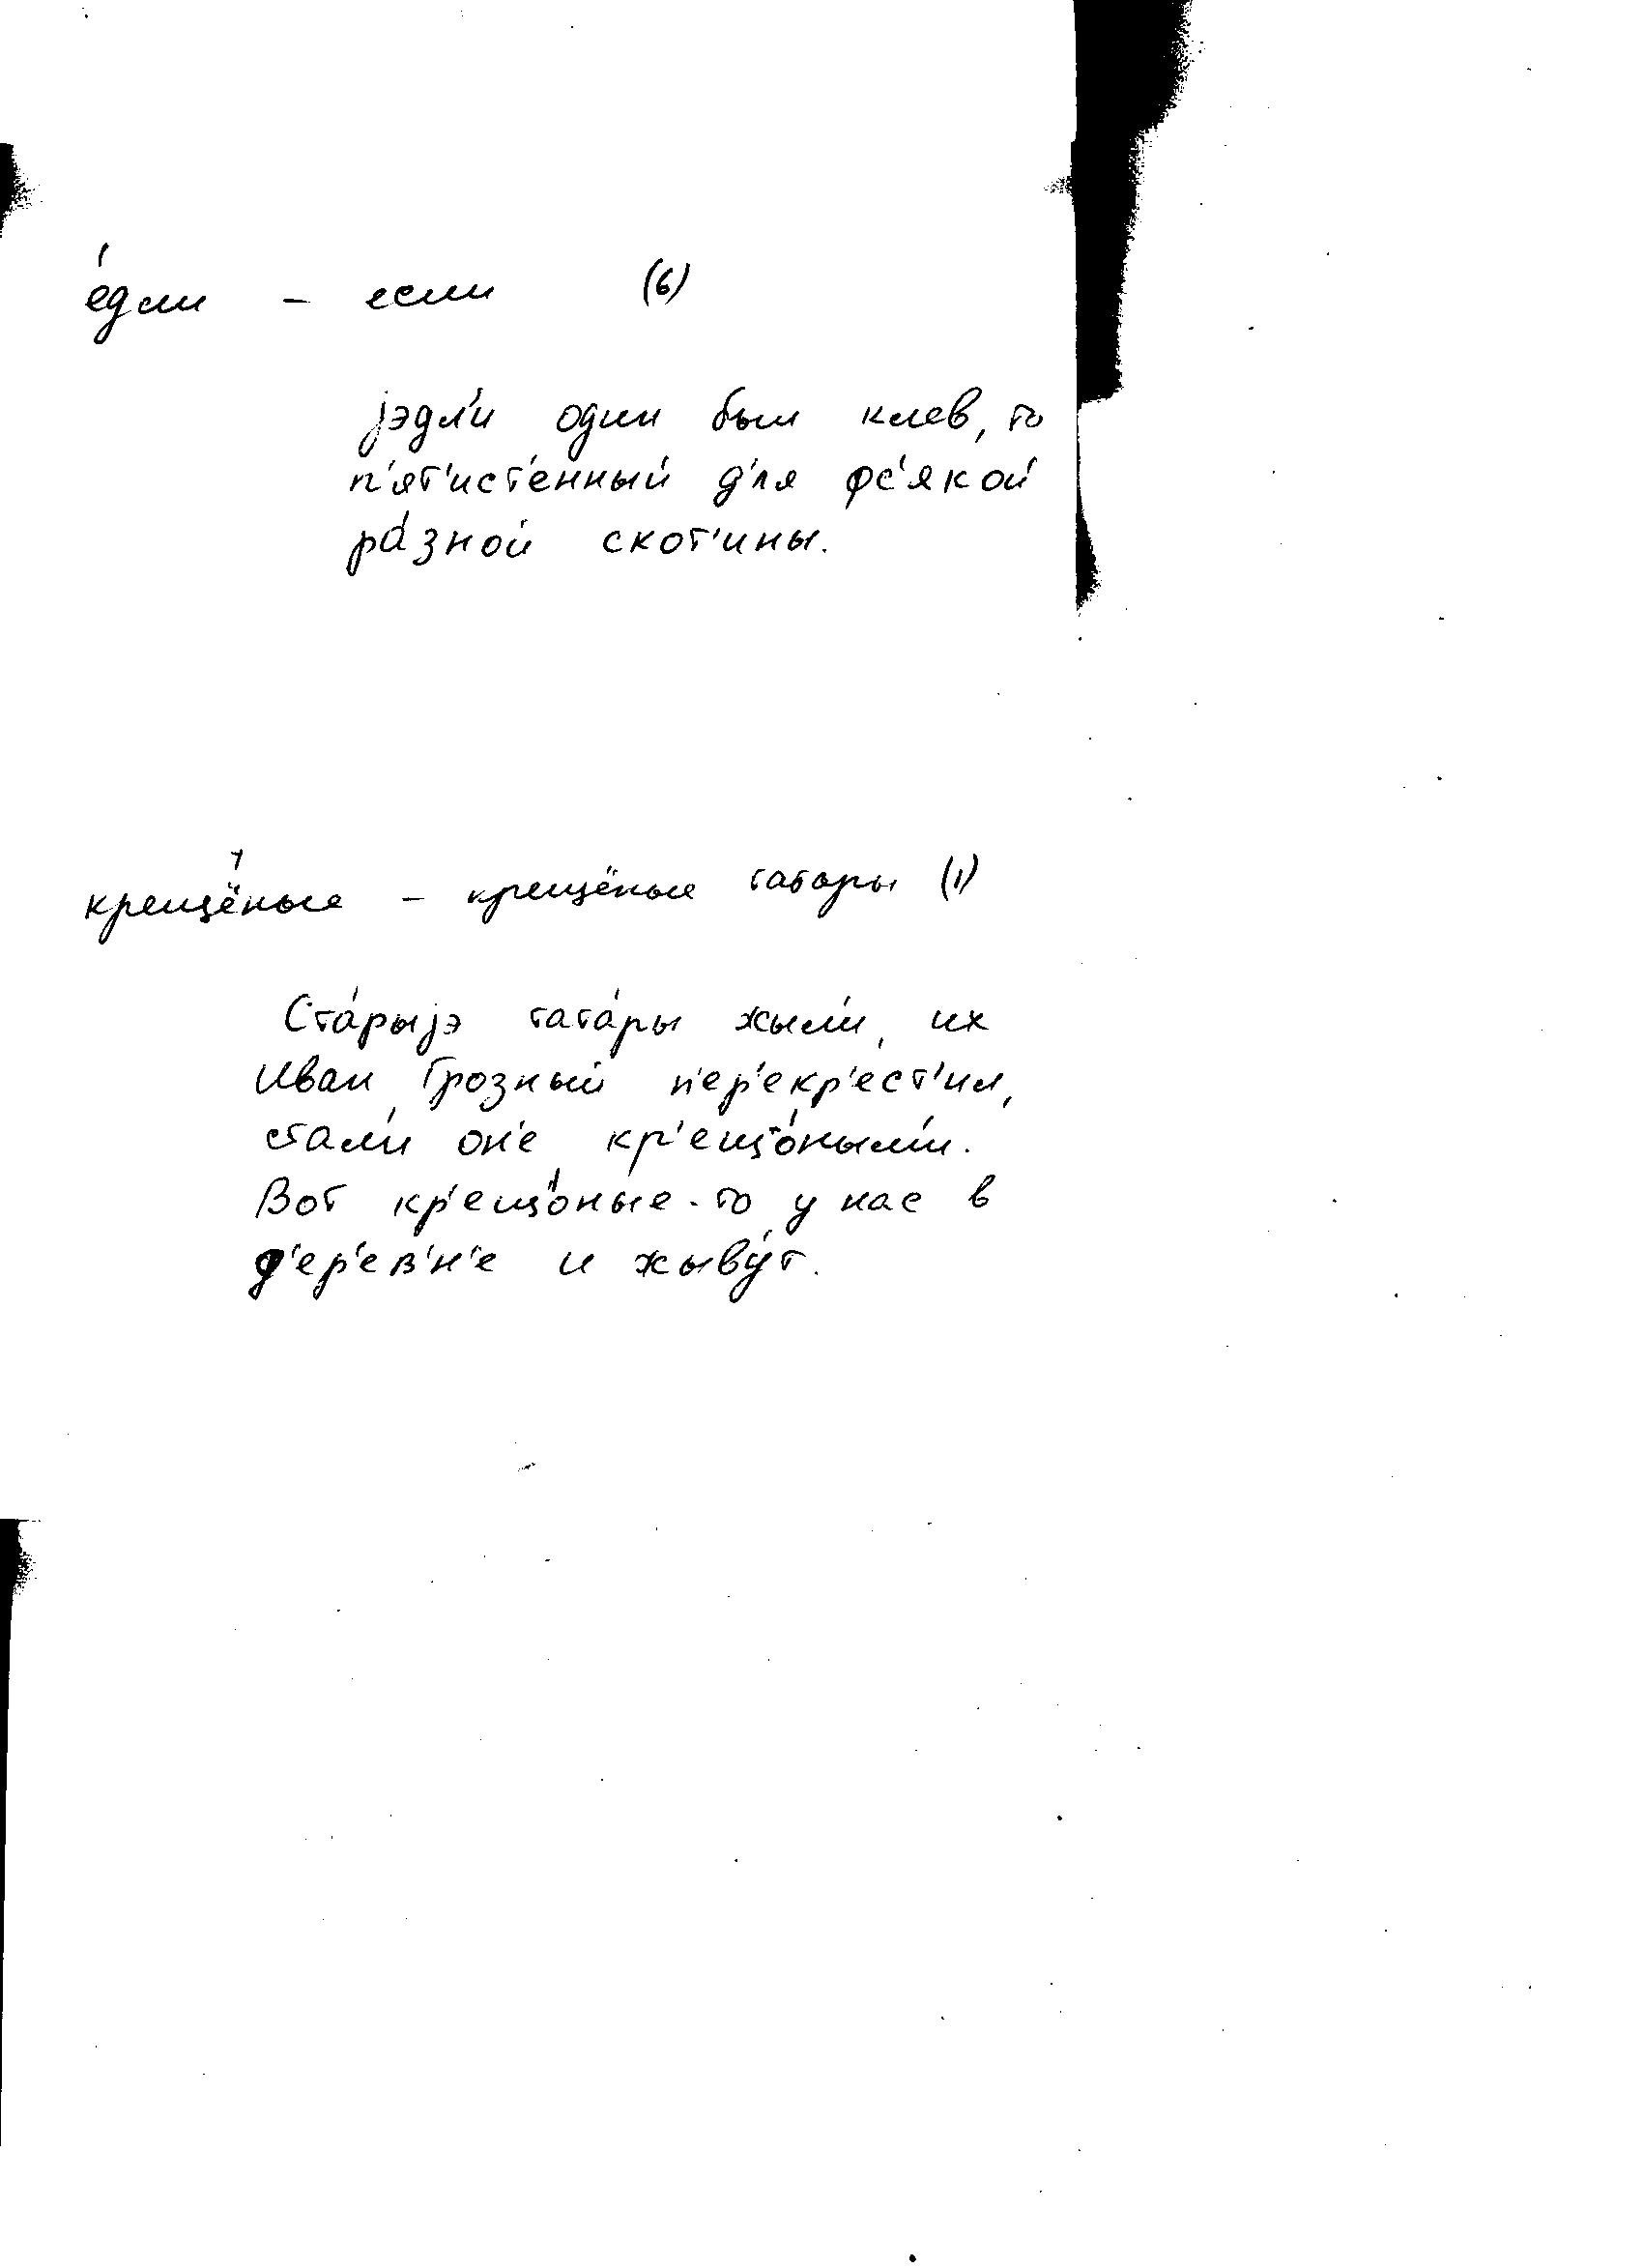 е́дли – если (6)
jэдл'и один был клев, то
п'ят'ист'енный д'ля фс'якой
ра́зной скот'ины.
крещёные – крещёные татары (1)
Ста́рыjэ тата́ры жыл'и, их
Иван Грозный п'ер'екр'ест'ил,
стал'и он'е кр'ещо́ным'и.
Вот кр'ещ'о́ные-то у нас в
д'ер'ев'н'е и жыву́т.